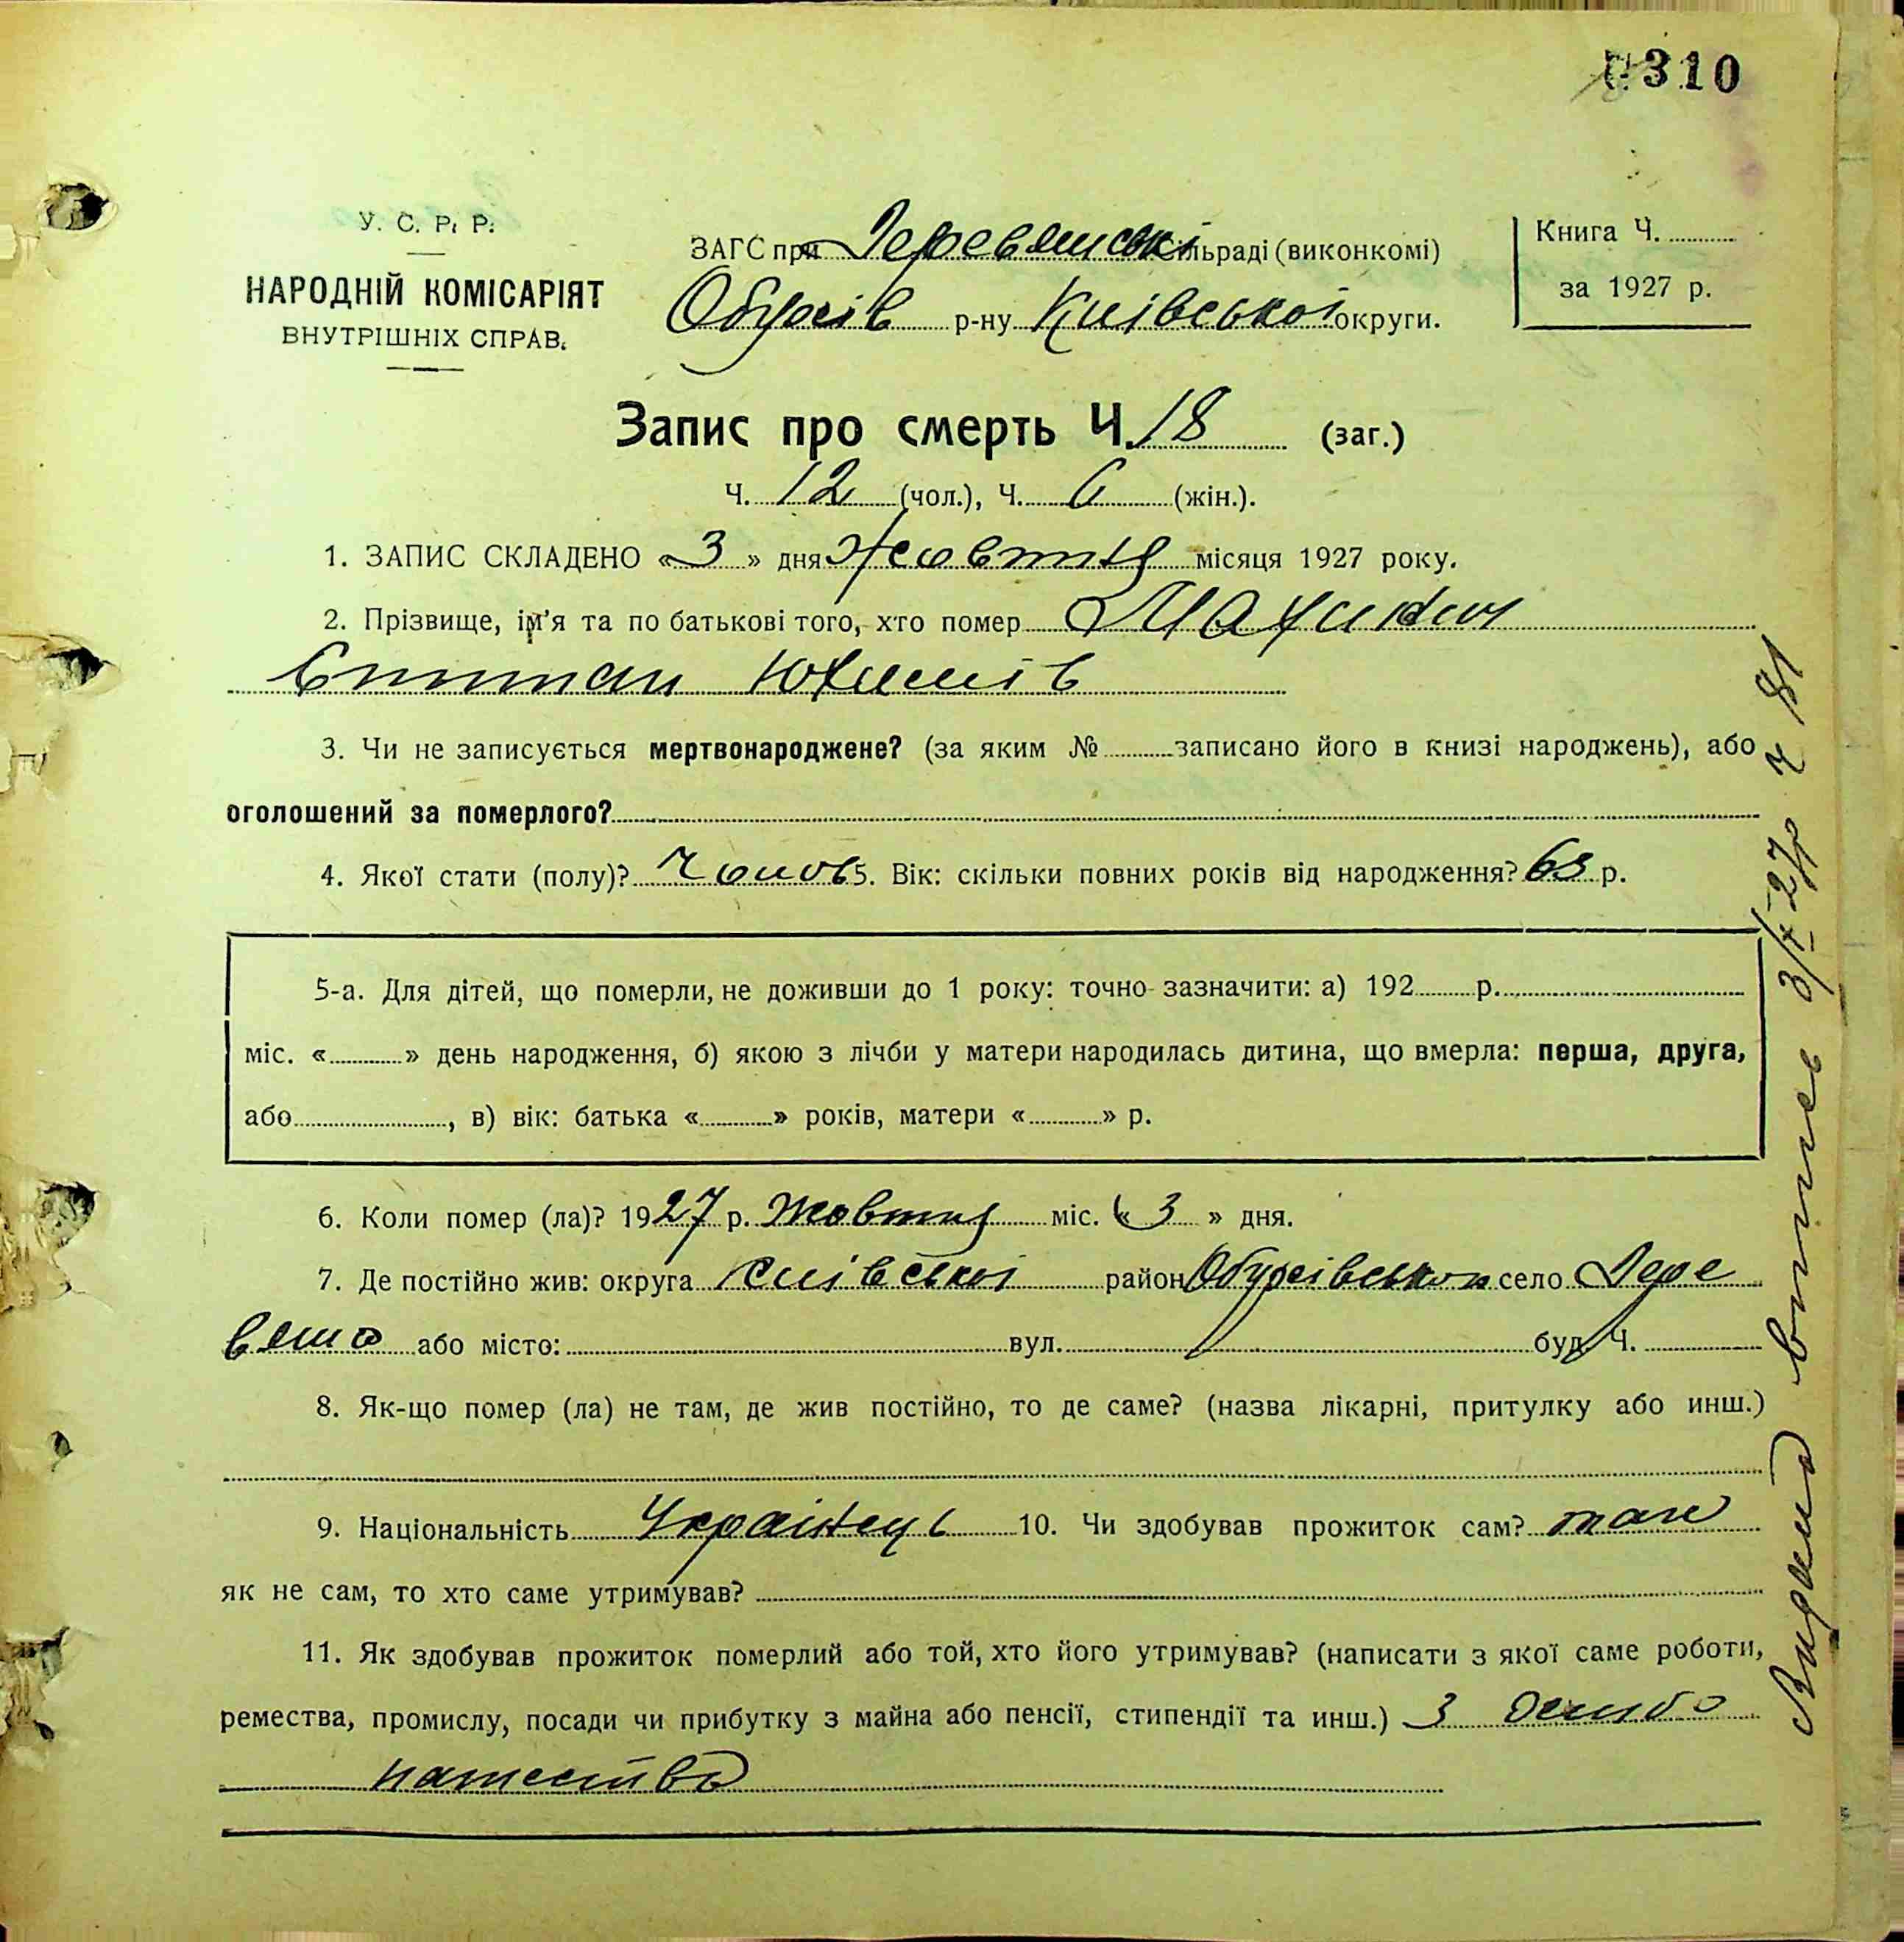 310
У. С. Р. Р.
НАРОДНІЙ КОМІСАРІЯТ
ВНУТРІШНІХ СПРАВ.
ЗАГС при Деревянській сільраді (виконкомі)
Обухів р-ну Київської округи.
Книга Ч.
за 1927 р.
Запис про смерть Ч. 18 (заг.)
Ч. 12 (чол.), Ч. 6 (жін.).
1. ЗАПИС СКЛАДЕНО « 3 » дня Жовтня місяця 1927 року.
2. Прізвище, ім'я та по батькові того, хто помер
Юхимів
3. Чи не записується мертвонароджене? (за яким № записано його в книзі народжень), або
оголошений за померлого?
4. Якої стати (полу)? Чолов 5. Вік: скільки повних років від народження? 63 р.
5-а. Для дітей, що померли, не доживши до 1 року: точно зазначити: а) 192 р.
міс. « » день народження, б) якою з лічби у матери народилась дитина, що вмерла: перша, друга,
або , в) вік: батька « » років, матери « » р.
6. Коли помер (ла)? 1927 р. Жовтня міс. « 3 » дня.
7. Де постійно жив: округа Київської район Обухівського село Дере
вяна або місто: вул. буд. Ч.
8. Як-що помер (ла) не там, де жив постійно, то де саме? (назва лікарні, притулку або инш.)
9. Національність Українець 10. Чи здобував прожиток сам? так
як не сам, то хто саме утримував?
11. Як здобував прожиток померлий або той, хто його утримував? (написати з якої саме роботи,
ремества, промислу, посади чи прибутку з майна або пенсії, стипендії та инш.) З хлібо
пашества
Видано витяг 3/X-27р ч 81